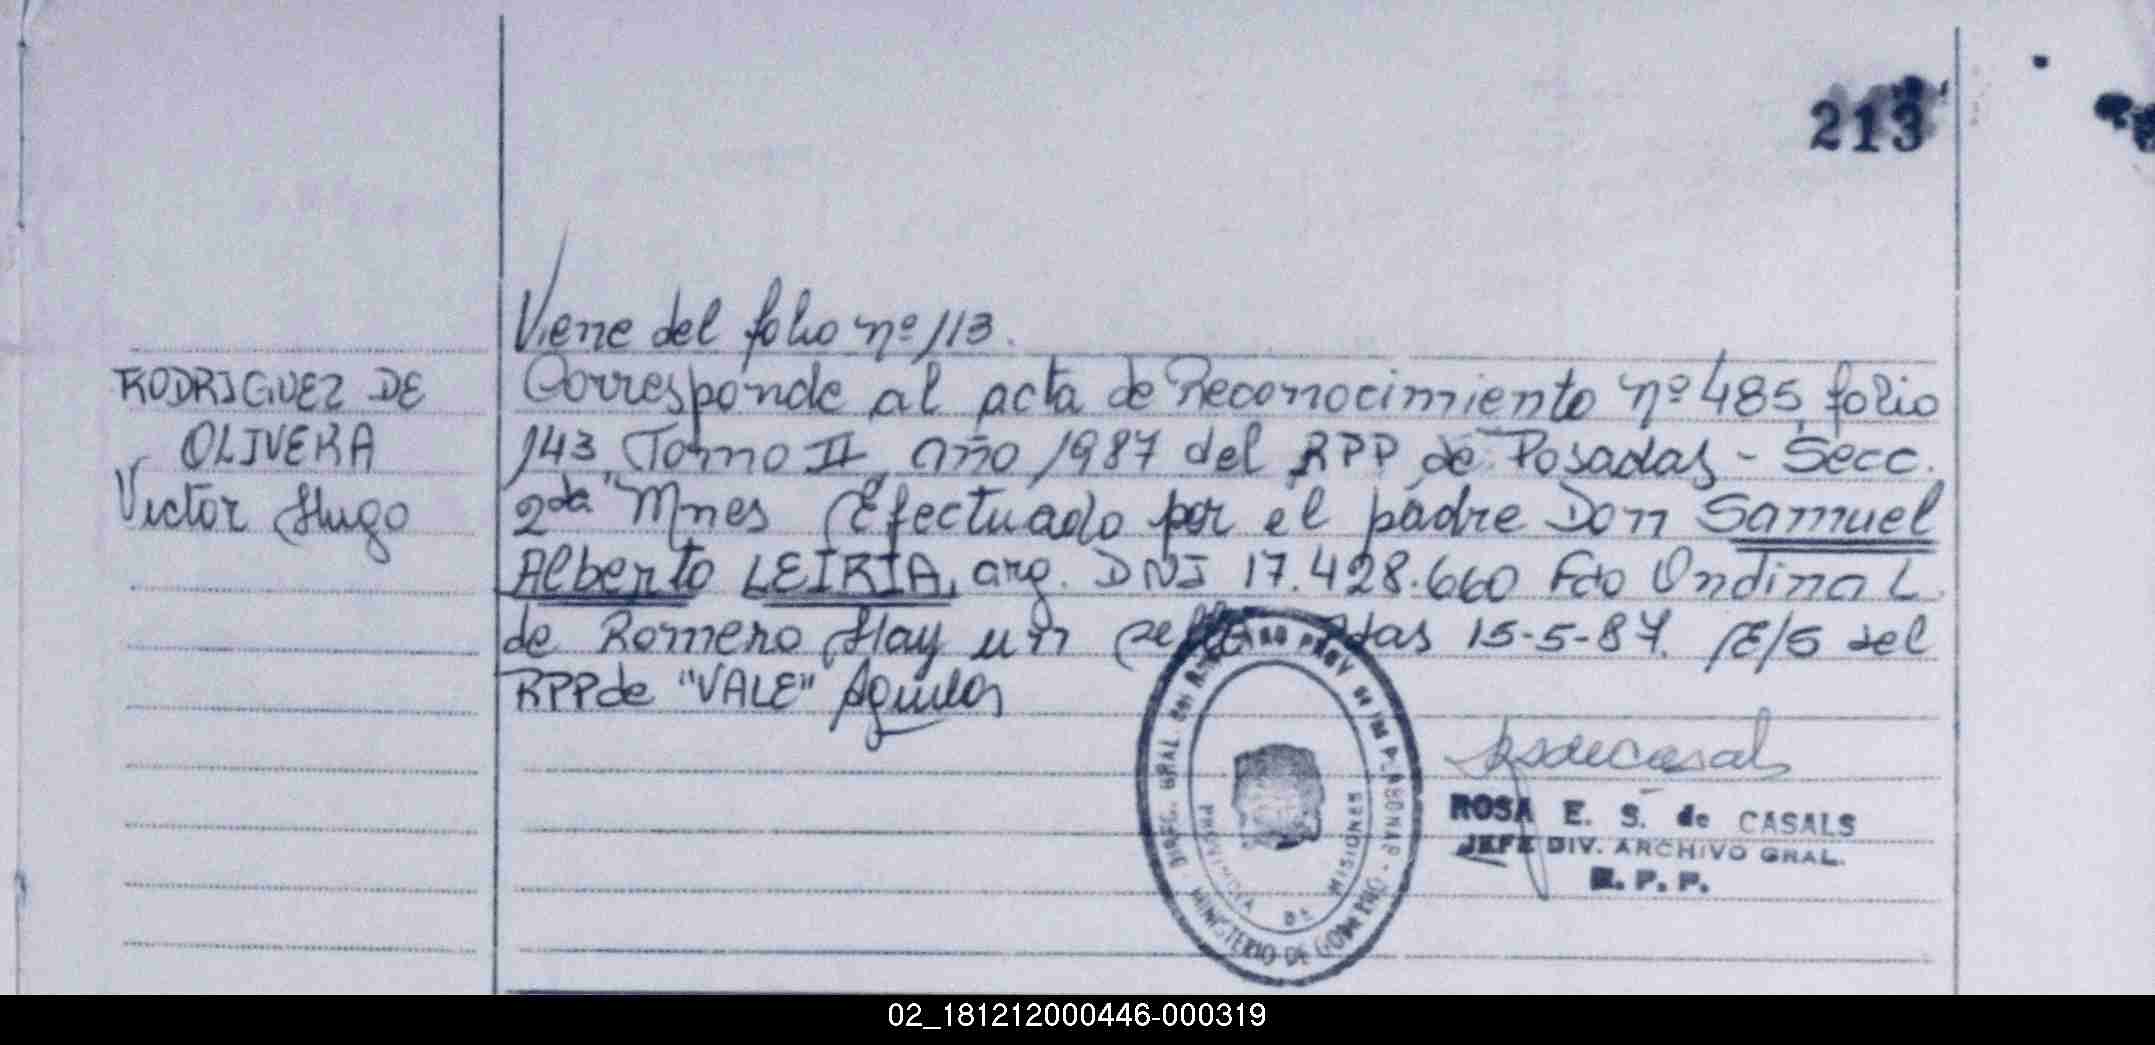 213
Viene del folio nº 113.
RODRIGUEZ DE
OLIVERA
Victor Hugo
Corresponde al acta de Reconocimiento nº 485, folio
143, Tomo II, año 1987 del RPP de Posadas - Secc.
2da Mnes Efectuado por el padre Don Samuel
Alberto LEIRIA, arg. DNI 17.428.660 Fdo Ondina L.
de Romero Hay un sello Pdas 15-5-87. E/S del
RPP de "VALE" Aguilar
ROSA E. S. de CASALS
JEFE DIV. ARCHIVO GRAL.
R. P. P.
DIREC. GRAL. del REGISTRO PROV. de las PERSONAS
MINISTERIO DE GOBIERNO
PROVINCIA DE MISIONES
02_181212000446-000319